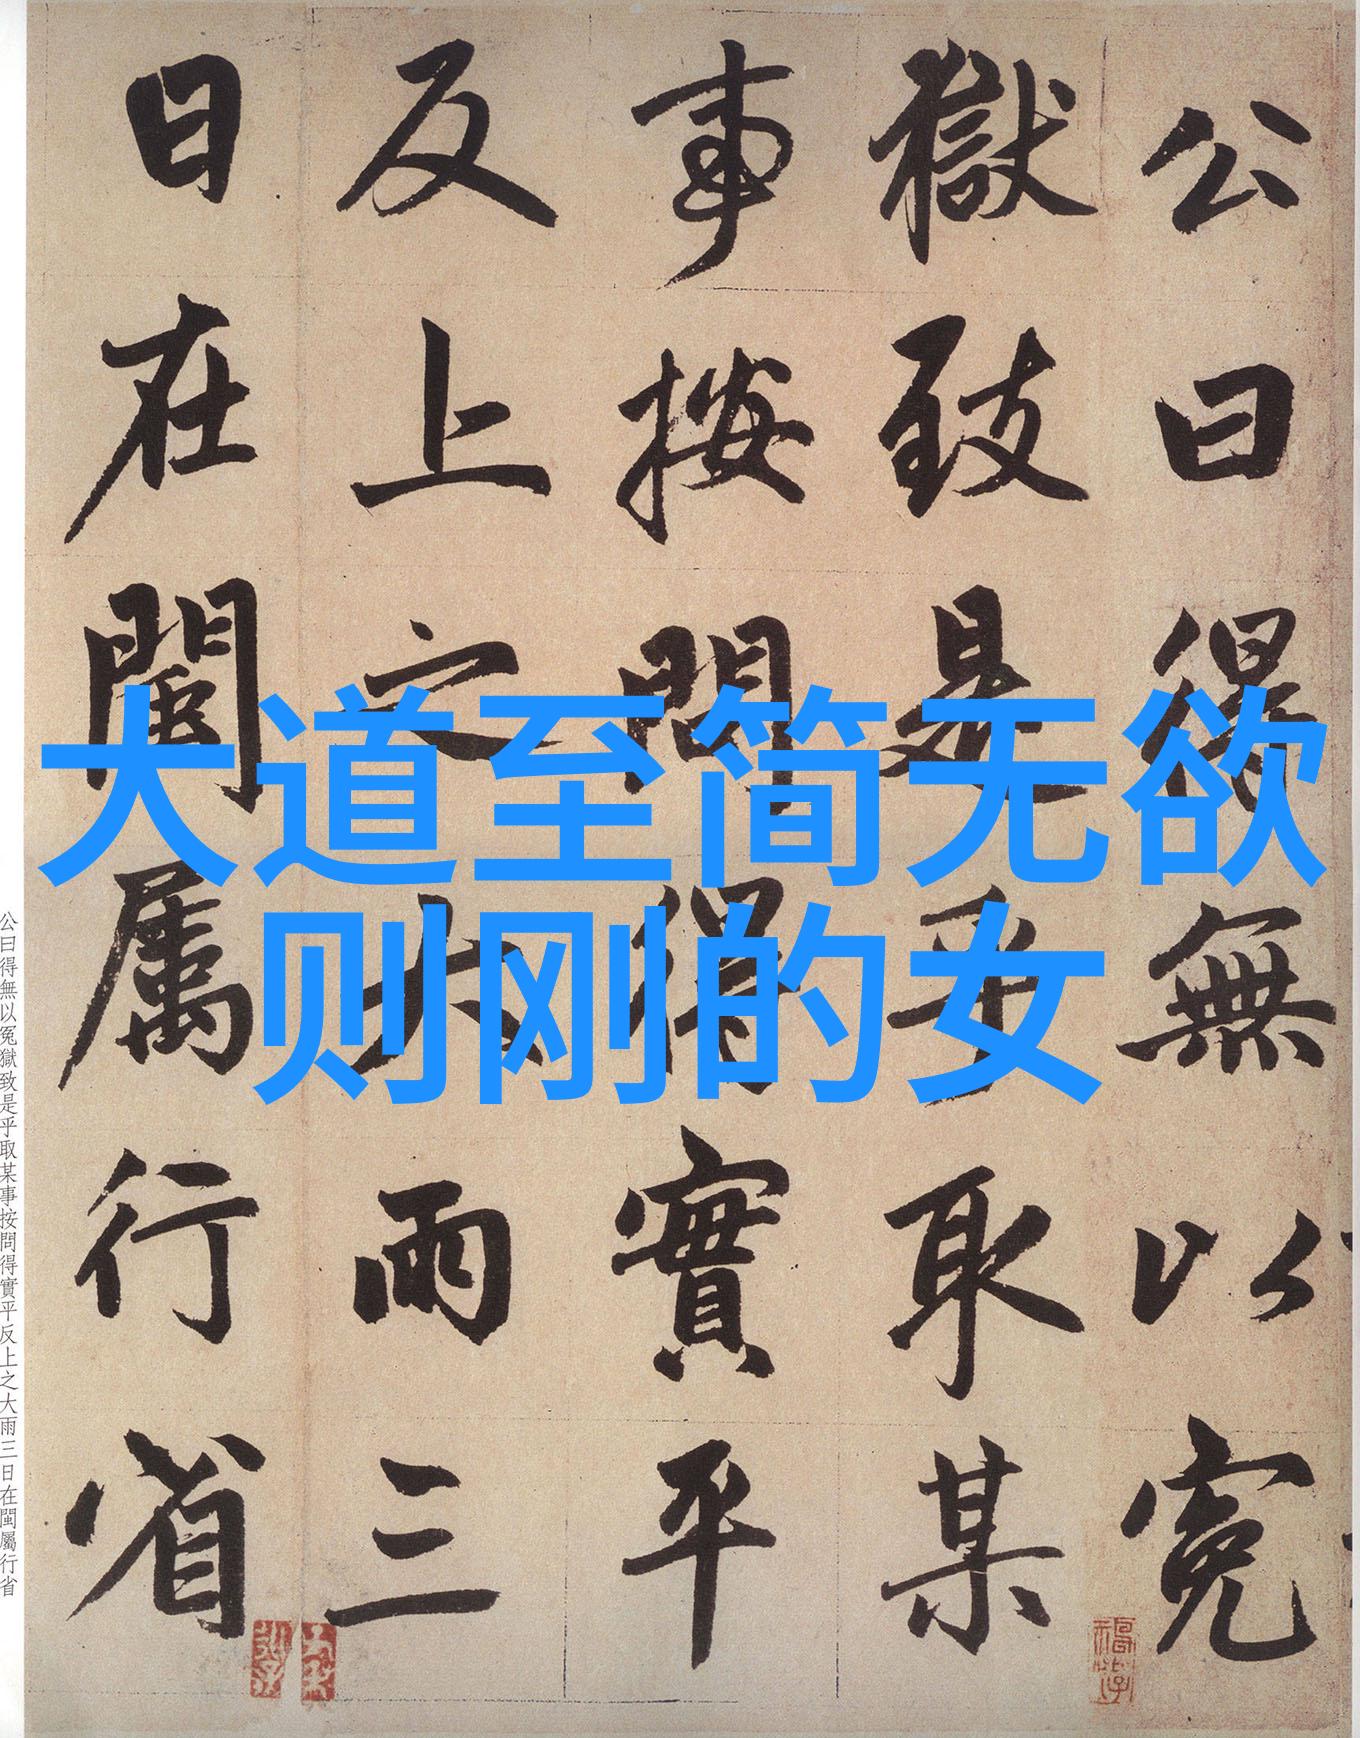 大道至简无欲
则刚的女
公曰得無以冤
獄致是乎取某
事按問得實平
反上之大雨三
日在閩屬行省
公曰得無以冤獄致是乎取某事按問得實平反上之大雨三日在閩屬行省